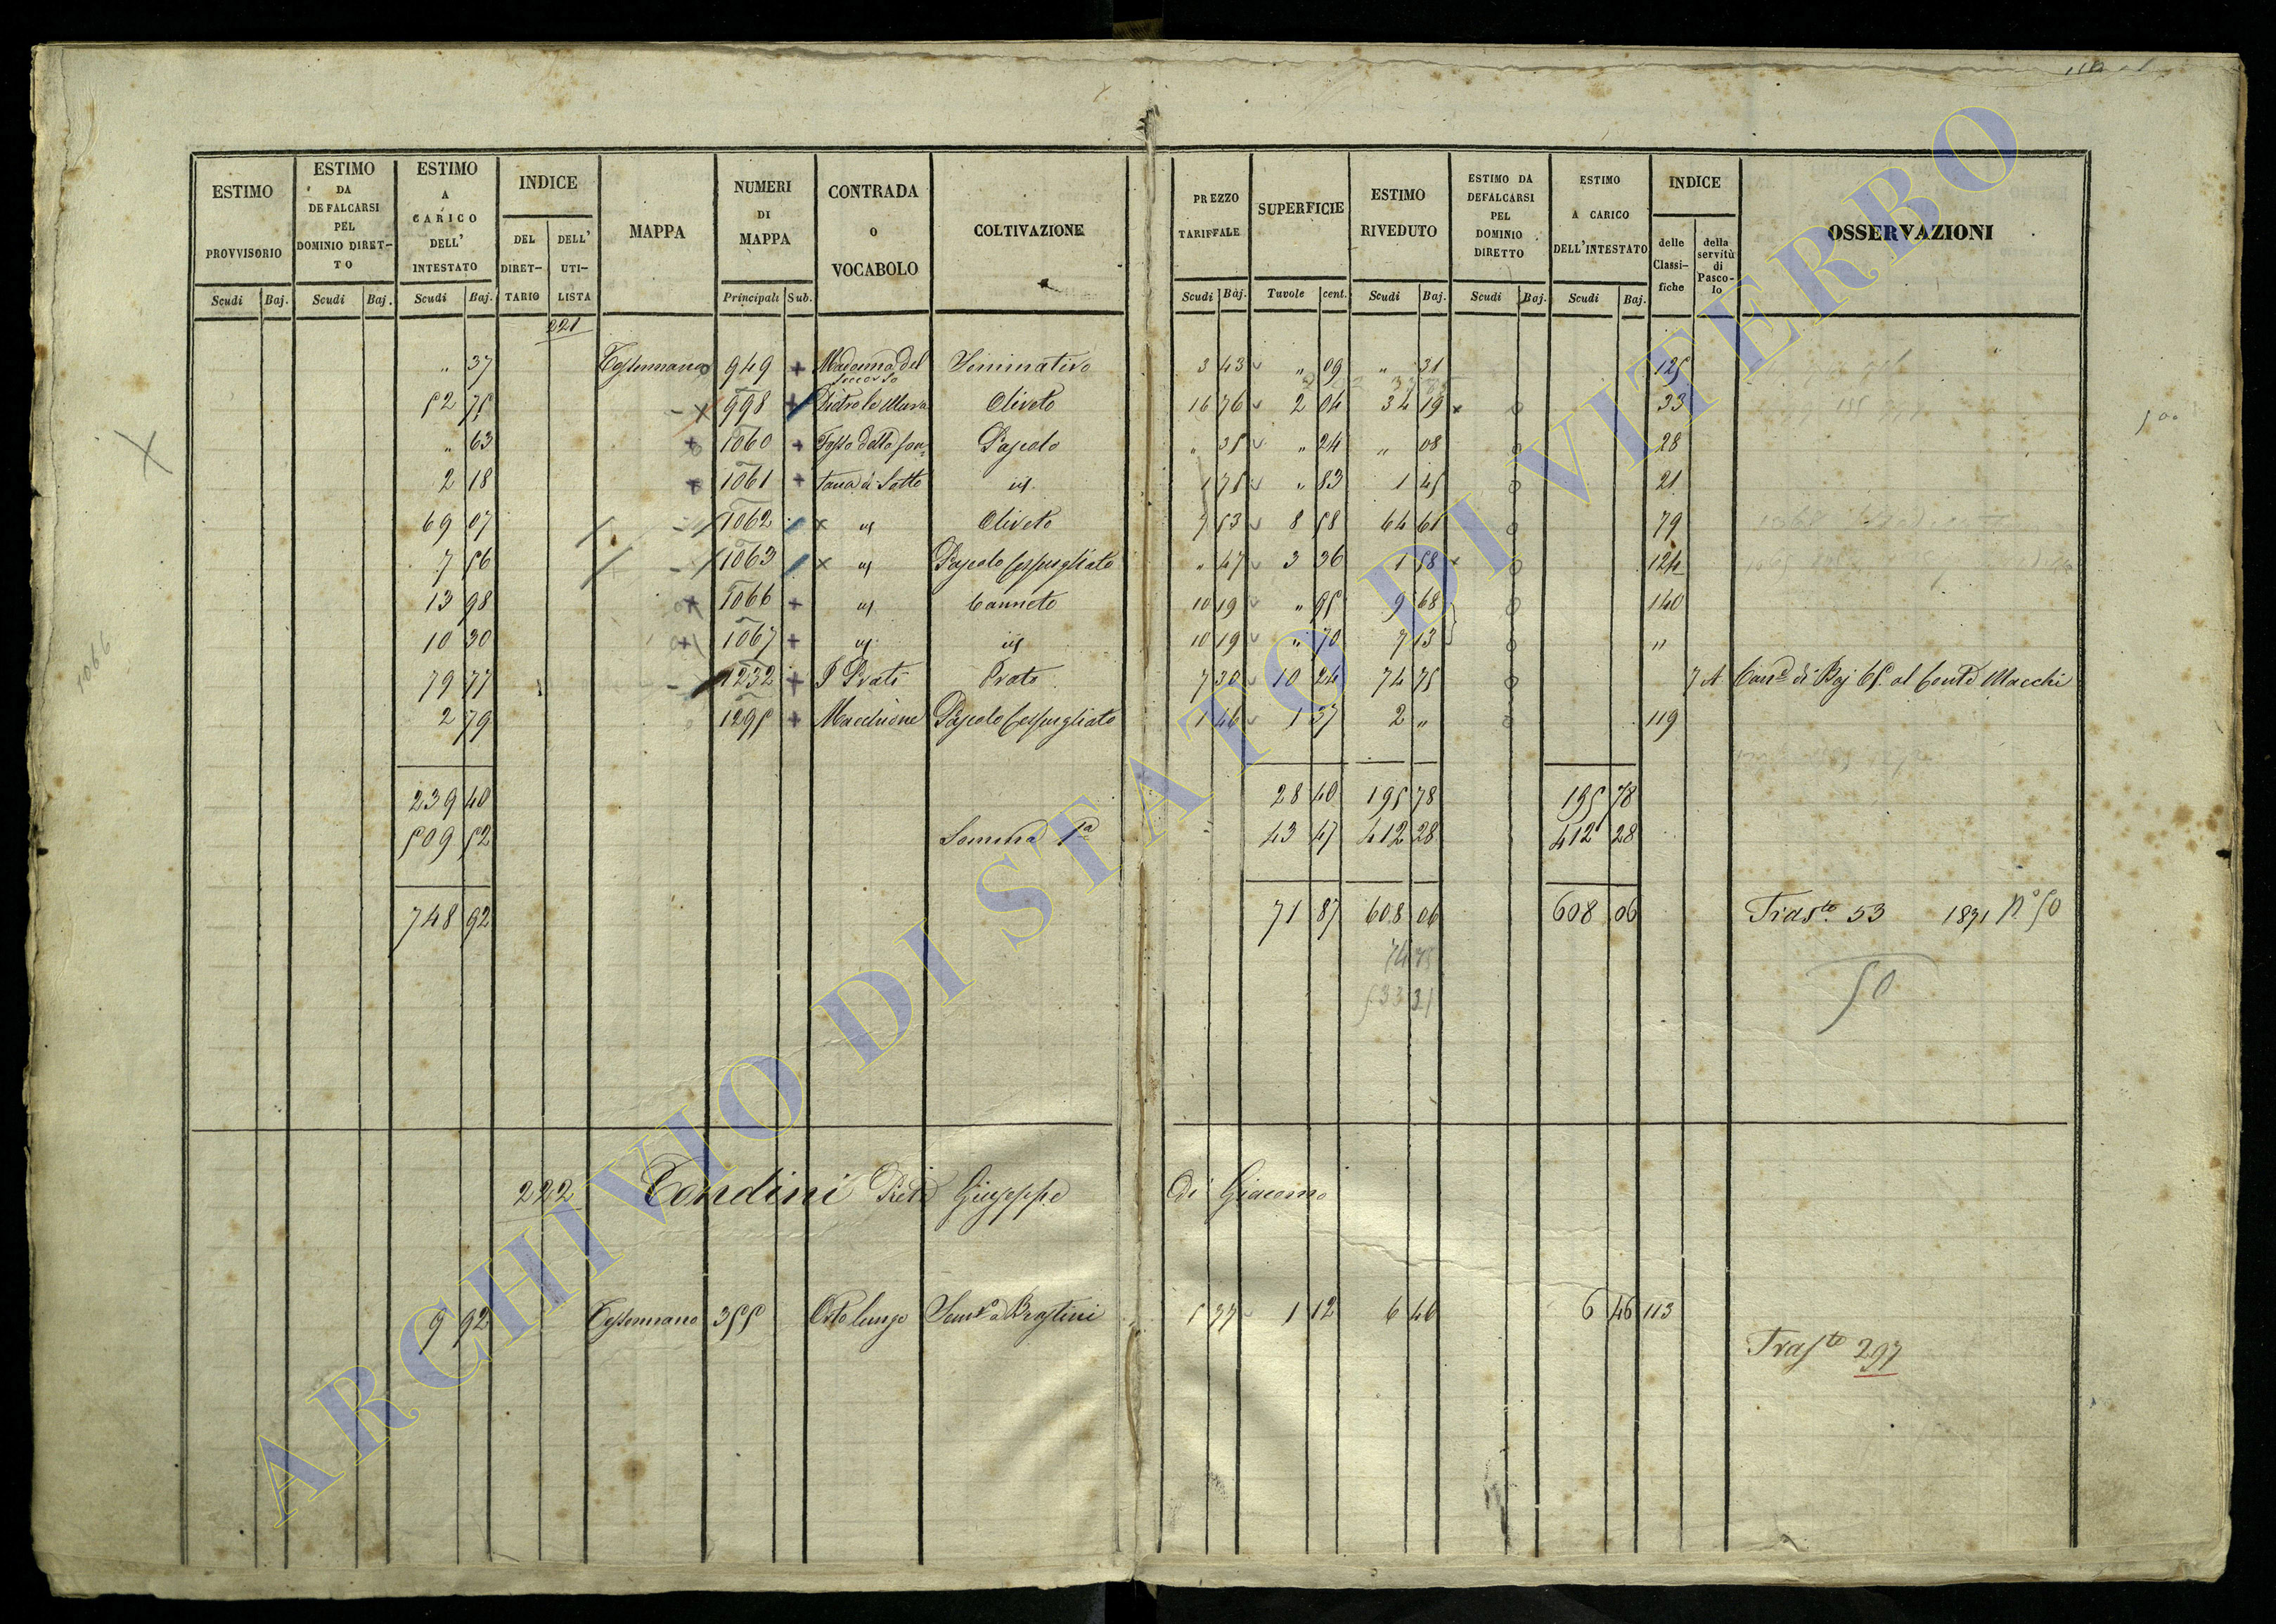 ESTIMO PROVVISORIO Scudi Baj.
ESTIMO DA DEFALCARSI PEL DOMINIO DIRETTO Scudi Baj.
ESTIMO A CARICO DELL' INTESTATO Scudi Baj.
INDICE DEL DIRETTARIO DELL' UTILISTA
MAPPA
NUMERI DI MAPPA Principali Sub.
CONTRADA O VOCABOLO
COLTIVAZIONE
PREZZO TARIFFALE Scudi Baj.
SUPERFICIE Tavole cent.
ESTIMO RIVEDUTO Scudi Baj.
ESTIMO DA DEFALCARSI PEL DOMINIO DIRETTO Scudi Baj.
ESTIMO A CARICO DELL'INTESTATO Scudi Baj.
INDICE delle Classifiche della servitù di Pascolo
OSSERVAZIONI
221
" 37 Tessennano 949 + Madonna del Soccorso Seminativo 3 43 " 09 " 31 125
52 75 998 + Dietro le Mura Oliveto 16 76 2 04 34 19 33
" 63 1060 + Fosso della fon= Pascolo " 35 " 24 " 08 28
2 18 1061 + tana di Sotto id 1 75 " 83 1 45 21
69 07 1062 x id Oliveto 7 53 8 58 64 61 79
7 56 1063 x id Pascolo Cespugliato " 47 3 36 1 58 124
13 98 1066 + id Canneto 10 19 " 95 9 68 140
10 30 1067 + id id 10 19 " 70 7 13 "
79 77 1232 + I Prati Prato 7 30 10 24 74 75 7 A Can.e di Baj 65. al Conte Macchi
2 79 1295 + Macchione Pascolo Cespugliato 1 46 1 37 2 " 119
239 40 28 40 195 78 195 78
509 52 Somma 1a 43 47 412 28 412 28
748 92 71 87 608 06 608 06 Tras.to 53 1871 No 50
74 75
533 31
50
1066
222 Tondini Pietro Giuseppe di Giacomo
9 92 Tessennano 355 Orto lungo Sem.o a Brostini 5 77 1 12 6 46 6 46 113
Tras.to 297
ARCHIVIO DI STATO DI VITERBO